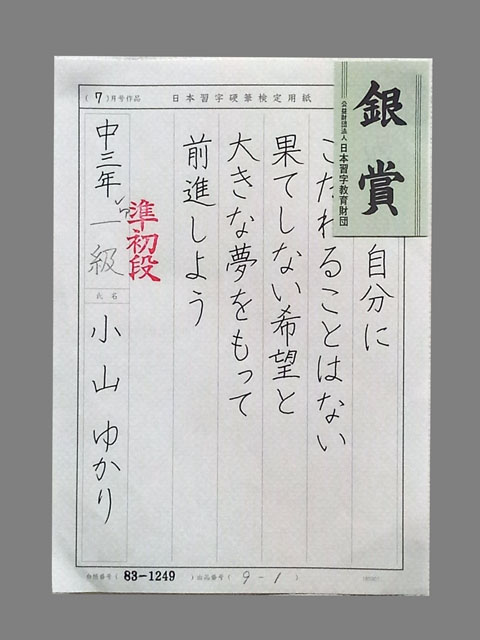 (7)月号作品
日本習字硬筆検定用紙
銀賞
公益財団法人 日本習字教育財団
自分に
こだわることはない
果てしない希望と
大きな夢をもって
前進しよう
準初段
中三年 一級
氏名
小山ゆかり
会員番号(83-1249)出品番号(9-1)